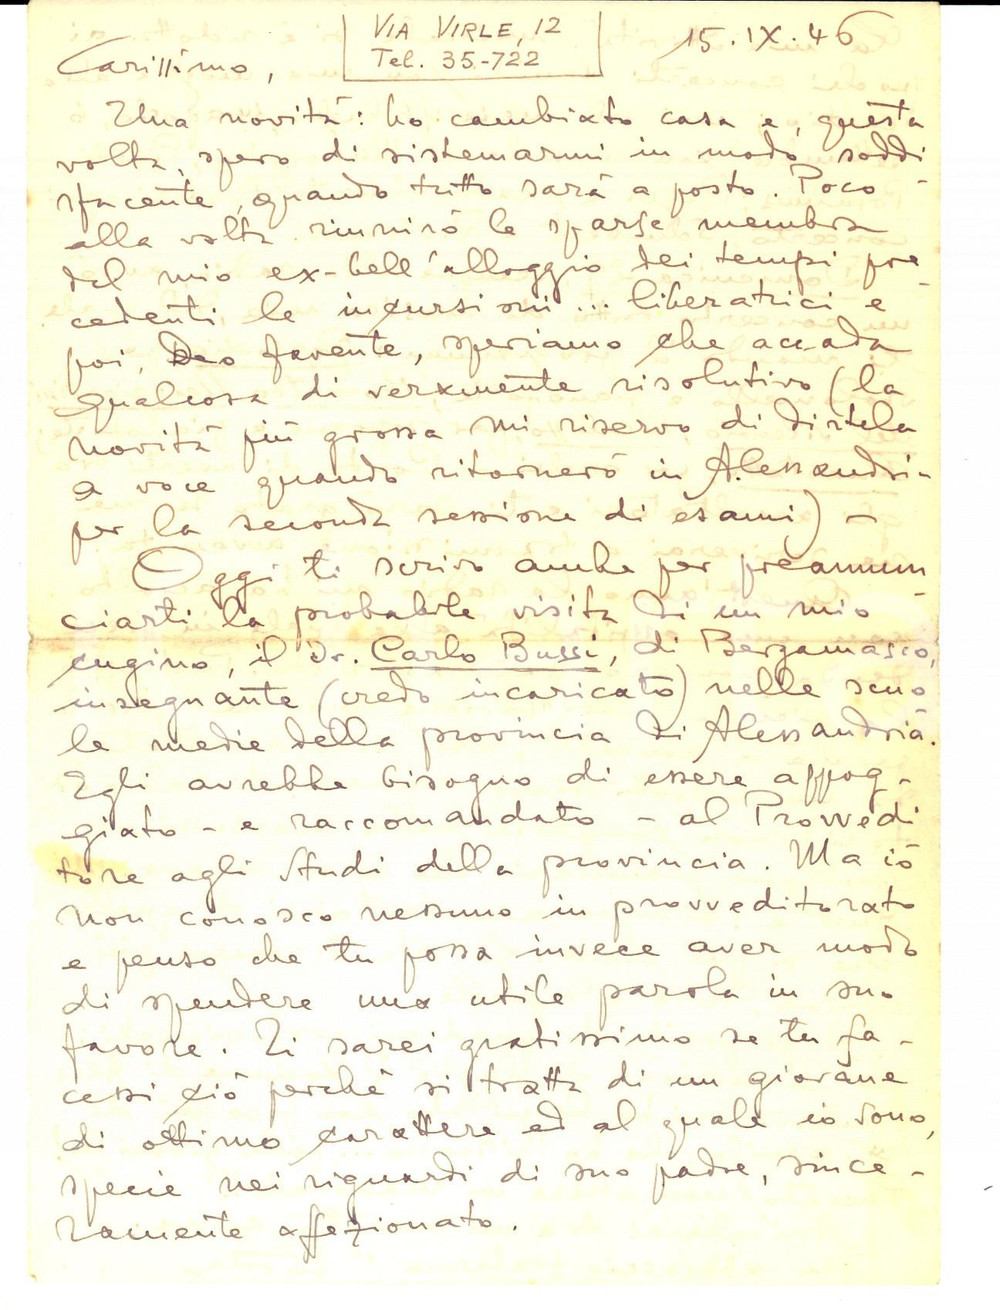 VIA VIRLE, 12
Tel. 35-722
15.IX.46
Carissimo,
Una novità: ho cambiato casa e, questa
volta, spero di sistemarmi in modo soddi
sfacente, quando tutto sarà a posto. Poco
alla volta riunirò le sparse membra
del mio ex-bell'alloggio dei tempi pre-
cedenti le incursioni... liberatrici e
poi, Deo favente, speriamo che accada
qualcosa di veramente risolutivo (la
novità più grossa mi riservo di dirtela
a voce quando ritornerò in Alessandri-
per la seconda sessione di esami) -
Oggi ti scrivo anche per preannun
ciarti la probabile visita di un mio
cugino, il Dr. Carlo Bussi, di Bergamasco,
insegnante (credo incaricato) nelle scuo
le medie della provincia di Alessandria.
Egli avrebbe bisogno di essere appog-
giato - e raccomandato - al Provvedi
tore agli Studi della provincia. Ma io
non conosco nessuno in provveditorato
e penso che tu possa invece aver modo
di spendere una utile parola in suo
favore. Ti sarei gratissimo se tu fa-
cessi ciò perché si tratta di un giovane
di ottimo carattere ed al quale io sono,
specie nei riguardi di suo padre, since-
ramente affezionato.